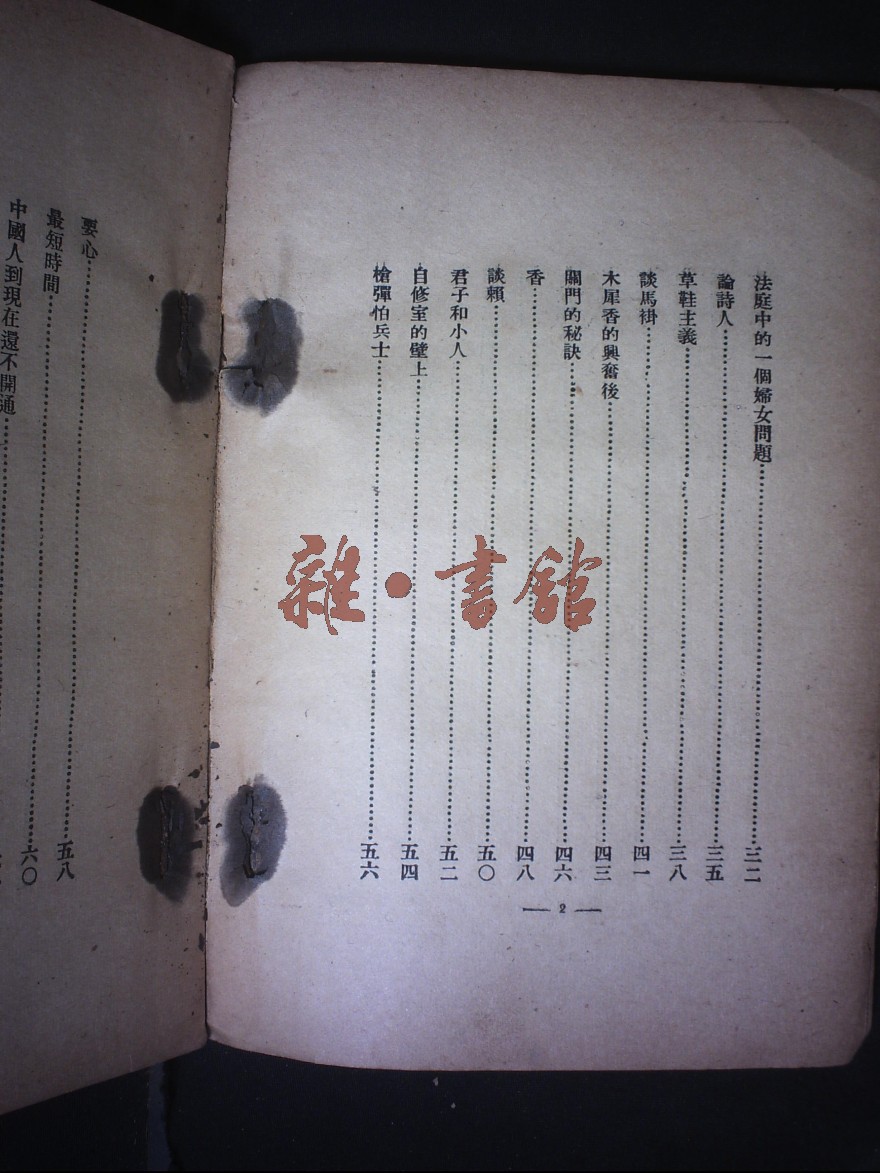 法庭中的一個婦女問題……三二
論詩人……三五
草鞋主義……三八
談馬褂……四一
木犀香的興奮後……四三
關門的秘訣……四六
香……四八
談賴……五〇
君子和小人……五二
自修室的壁上……五四
槍彈怕兵士……五六
— 2 —
要心……五八
最短時間……六〇
中國人到現在還不開通……
雜·書館